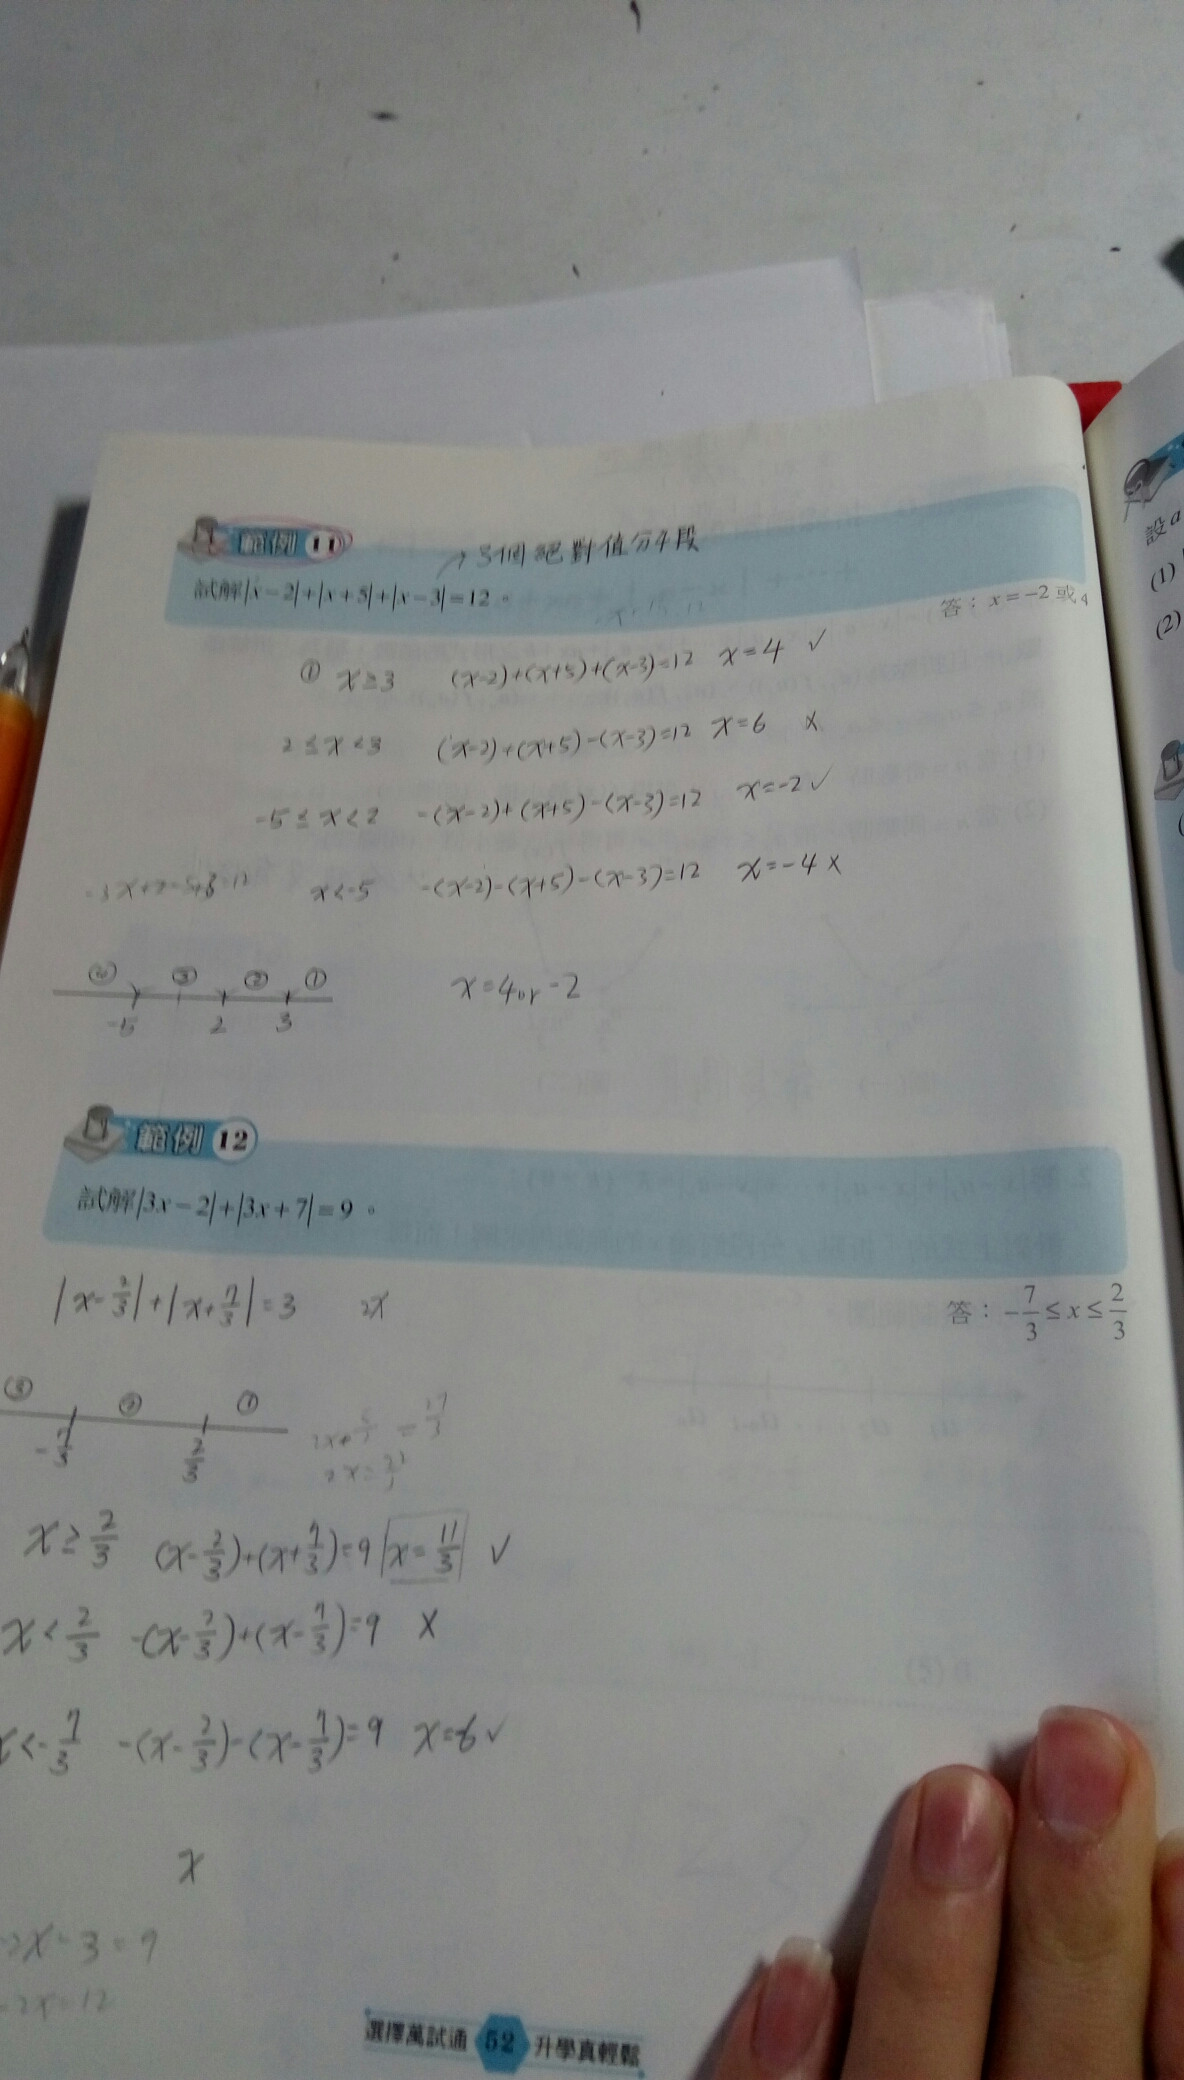 範例 11
→3個絕對值分4段
試解|x−2|+|x+5|+|x−3|=12。
答：x=−2或4
① x≥3 (x-2)+(x+5)+(x-3)=12 x=4 ✓
2≤x<3 (x-2)+(x+5)-(x-3)=12 x=6 x
-5≤x<2 -(x-2)+(x+5)-(x-3)=12 x=-2 ✓
x<-5 -(x-2)-(x+5)-(x-3)=12 x=-4 x
③ ② ①
-5 2 3
x=4or-2
範例 12
試解|3x−2|+|3x+7|=9。
|x-2/3|+|x+7/3|=3 2x
答：−7/3≤x≤2/3
③ ② ①
-7/3 2/3
x≥2/3 (x-2/3)+(x+7/3)=9 x=11/3 ✓
x<2/3 -(x-2/3)+(x-7/3)=9 x
x<-7/3 -(x-2/3)-(x-7/3)=9 x=6 ✓
x
x-3=9
-2x=12
選擇萬試通 52 升學真輕鬆
設a
(1)
(2)